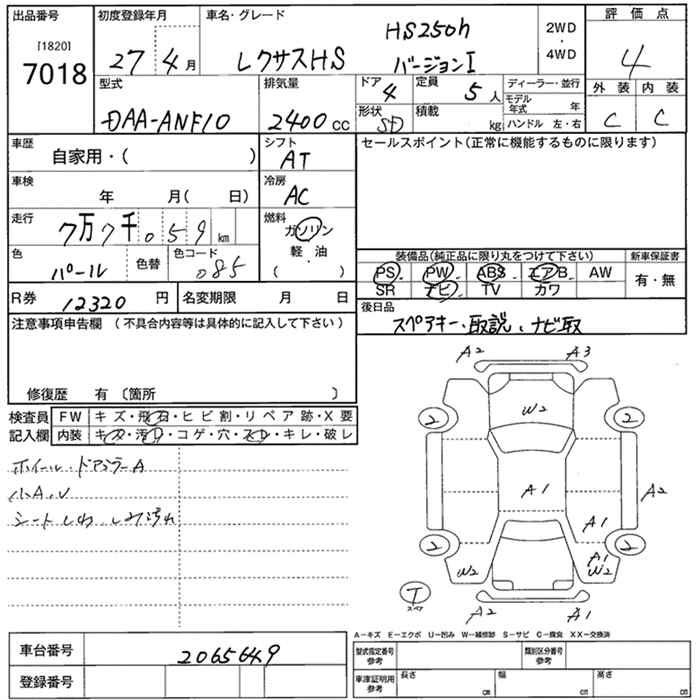 出品番号 初度登録年月 車名・グレード 評価点
[1820] 7018
27 4月
レクサスHS HS250h バージョンI
2WD・4WD
4
型式 排気量 ドア 定員 ディーラー・並行 外装 内装
DAA-ANF10 2400cc 4 5人
モデル年式 年
C C
形状 積載 kg ハンドル 左・右
SD
車歴 自家用・( )
シフト AT
セールスポイント(正常に機能するものに限ります)
車検 年 月( 日)
冷房 AC
走行 7万7千059km
燃料 ガソリン 軽・油 ( )
色 パール 色替 色コード 085
装備品(純正品に限り丸をつけて下さい) 新車保証書
PS PW ABS エアB AW 有・無
SR ナビ TV カワ
R券 12320円 名変期限 月 日
後日品
スペアキー、取説、ナビ取
注意事項申告欄 (不具合内容等は具体的に記入して下さい)
修復歴 有 〔箇所 〕
検査員記入欄
FW キズ・飛石・ヒビ割・リペア跡・X要
内装 キズ・汚れ・コゲ・穴・スレ・キレ・破レ
ホイール、ドアミラーA
小A、U
シートしわ しみ汚れ
A2 A3
W2
2 2
A1 A2
A1
2 2
A1
W2 W2
T スペア
A2 A1
A-キズ E-エクボ U-凹み W-補修跡 S-サビ C-腐食 XX-交換済
車台番号 2065649
登録番号
型式指定番号 参考 類別区分番号 参考
車庫証明用 参考 長さ cm 幅 cm 高さ cm